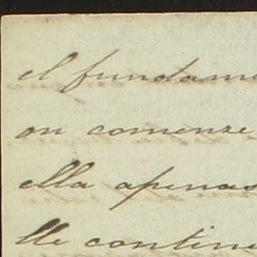 el fundame
on comenze
ella apenas
lle contin